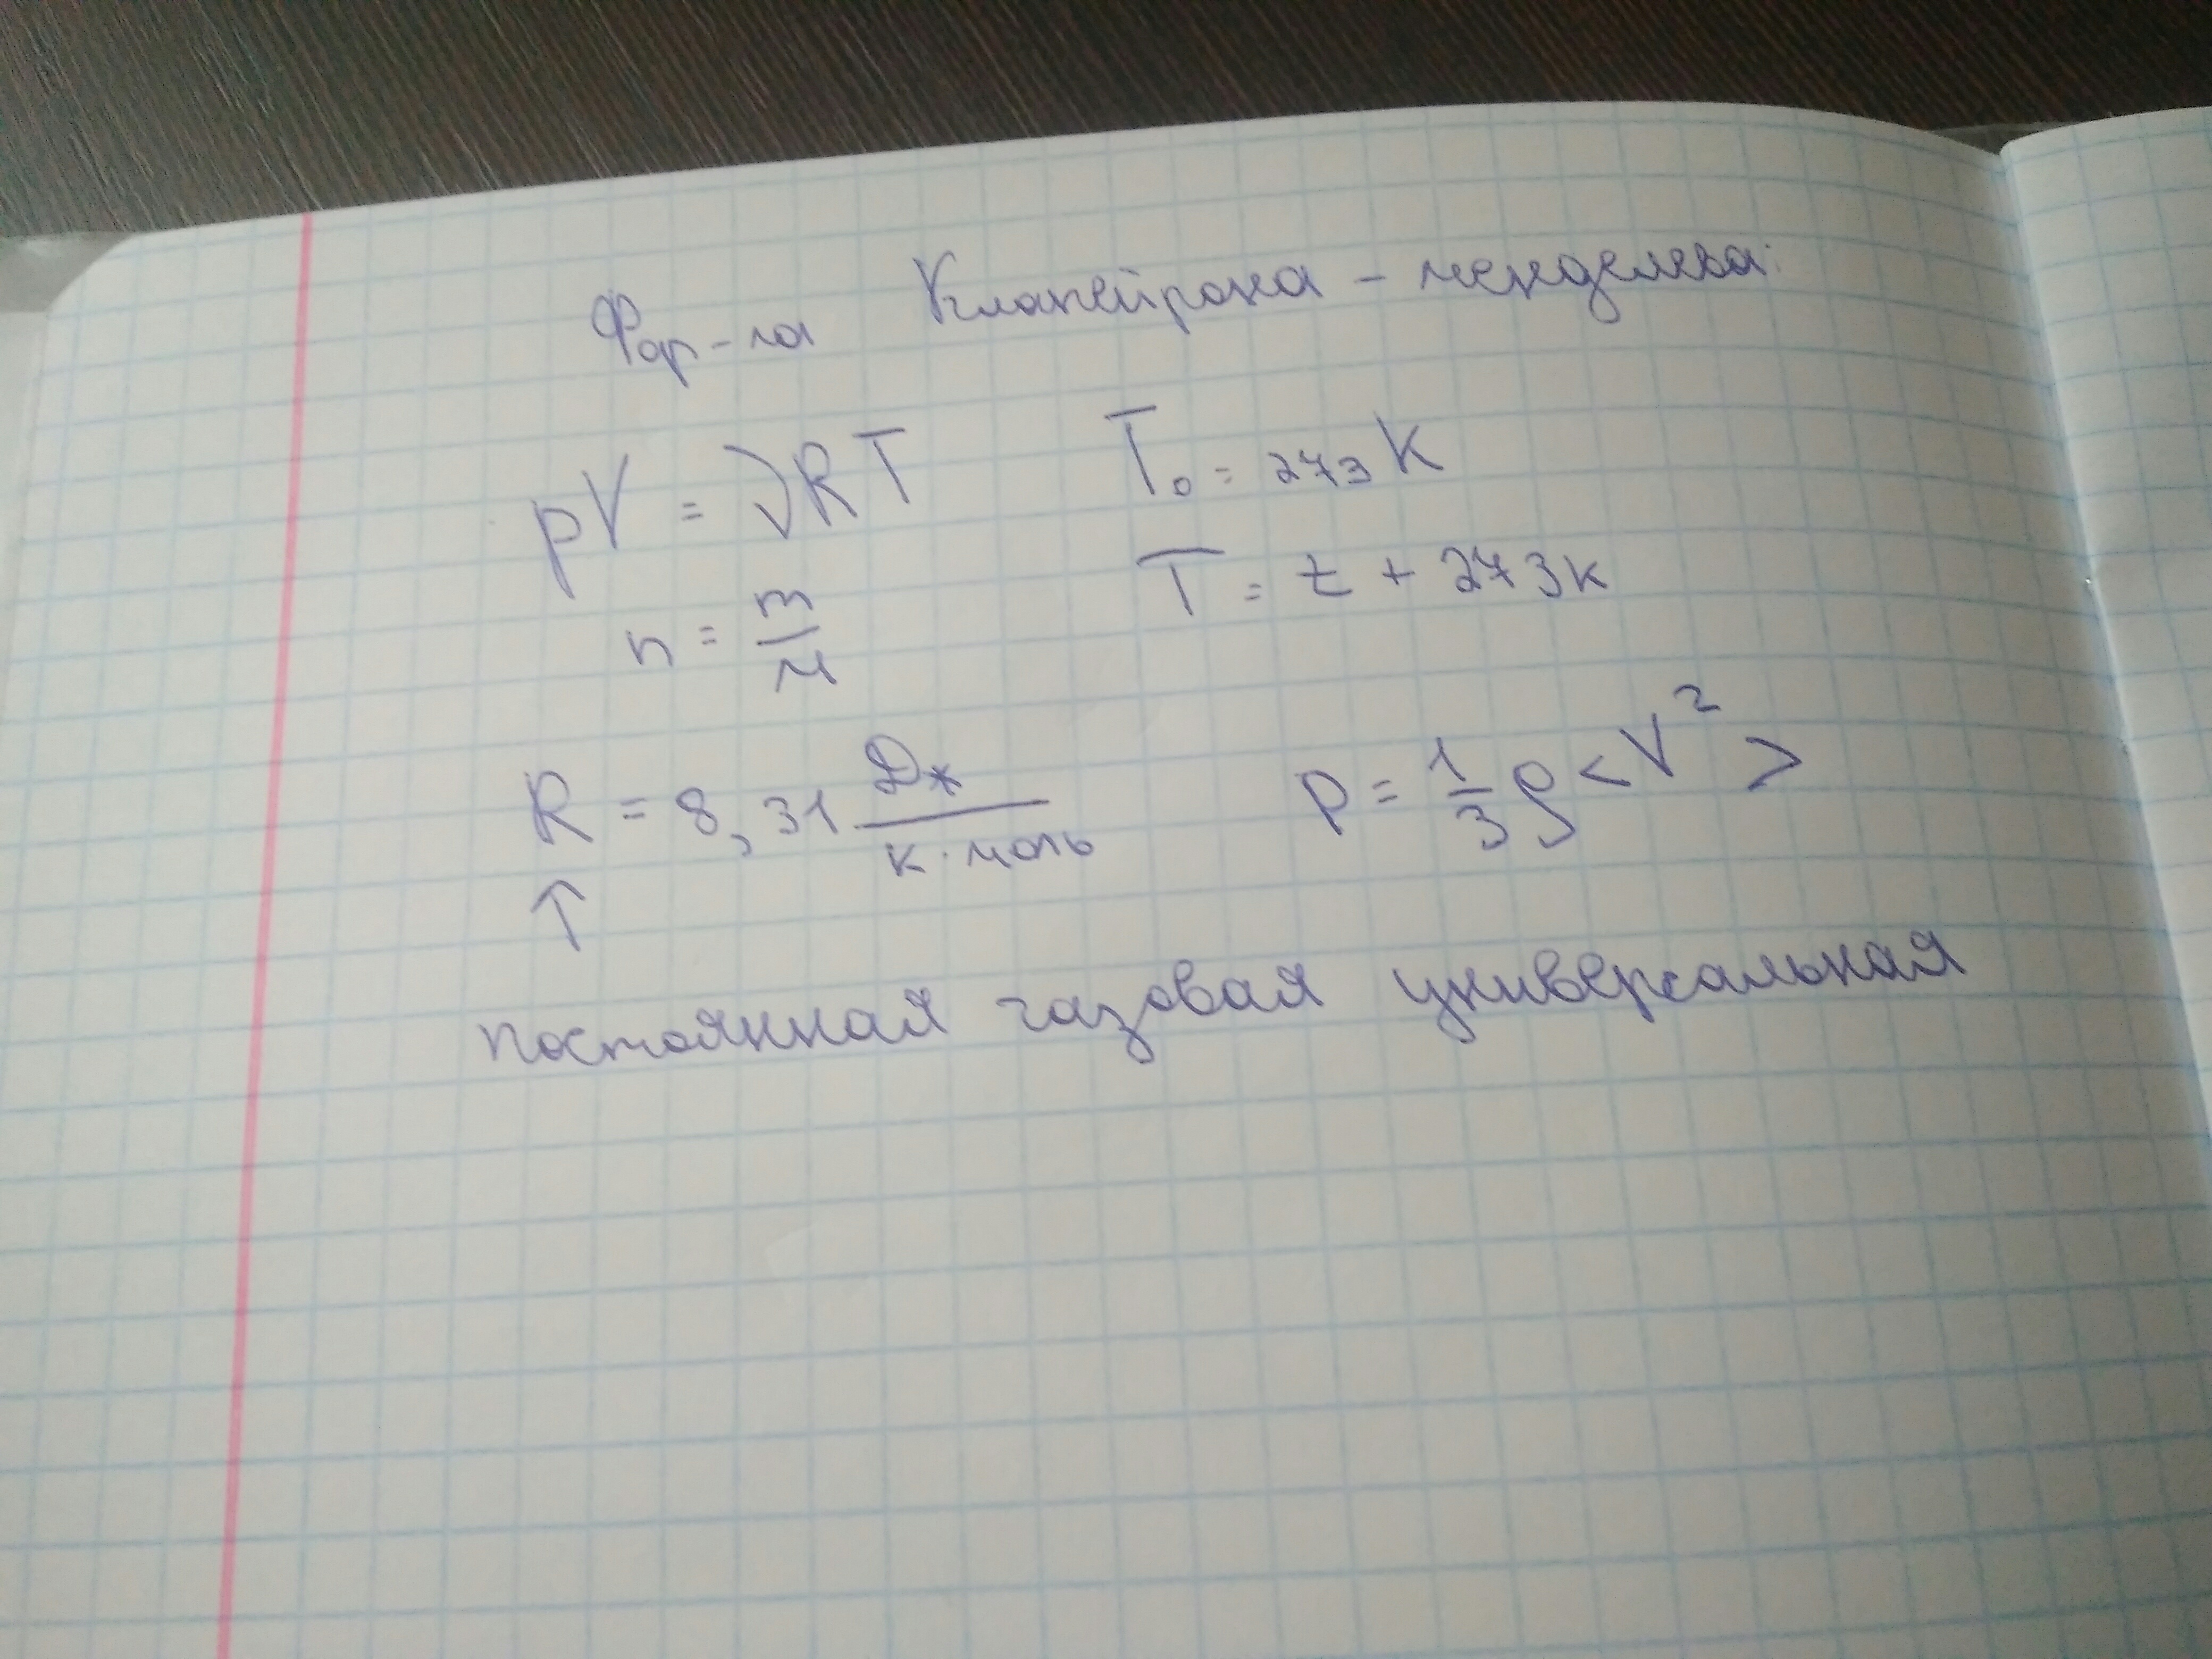 Фор-ла Клапейрона - менделева:
pV = νRT T₀ = 273 K
n = m/M T = t + 273к
R = 8,31 Дж/к·моль p = 1/3 ρ<V²>
↑
постоянная газовая универсальная